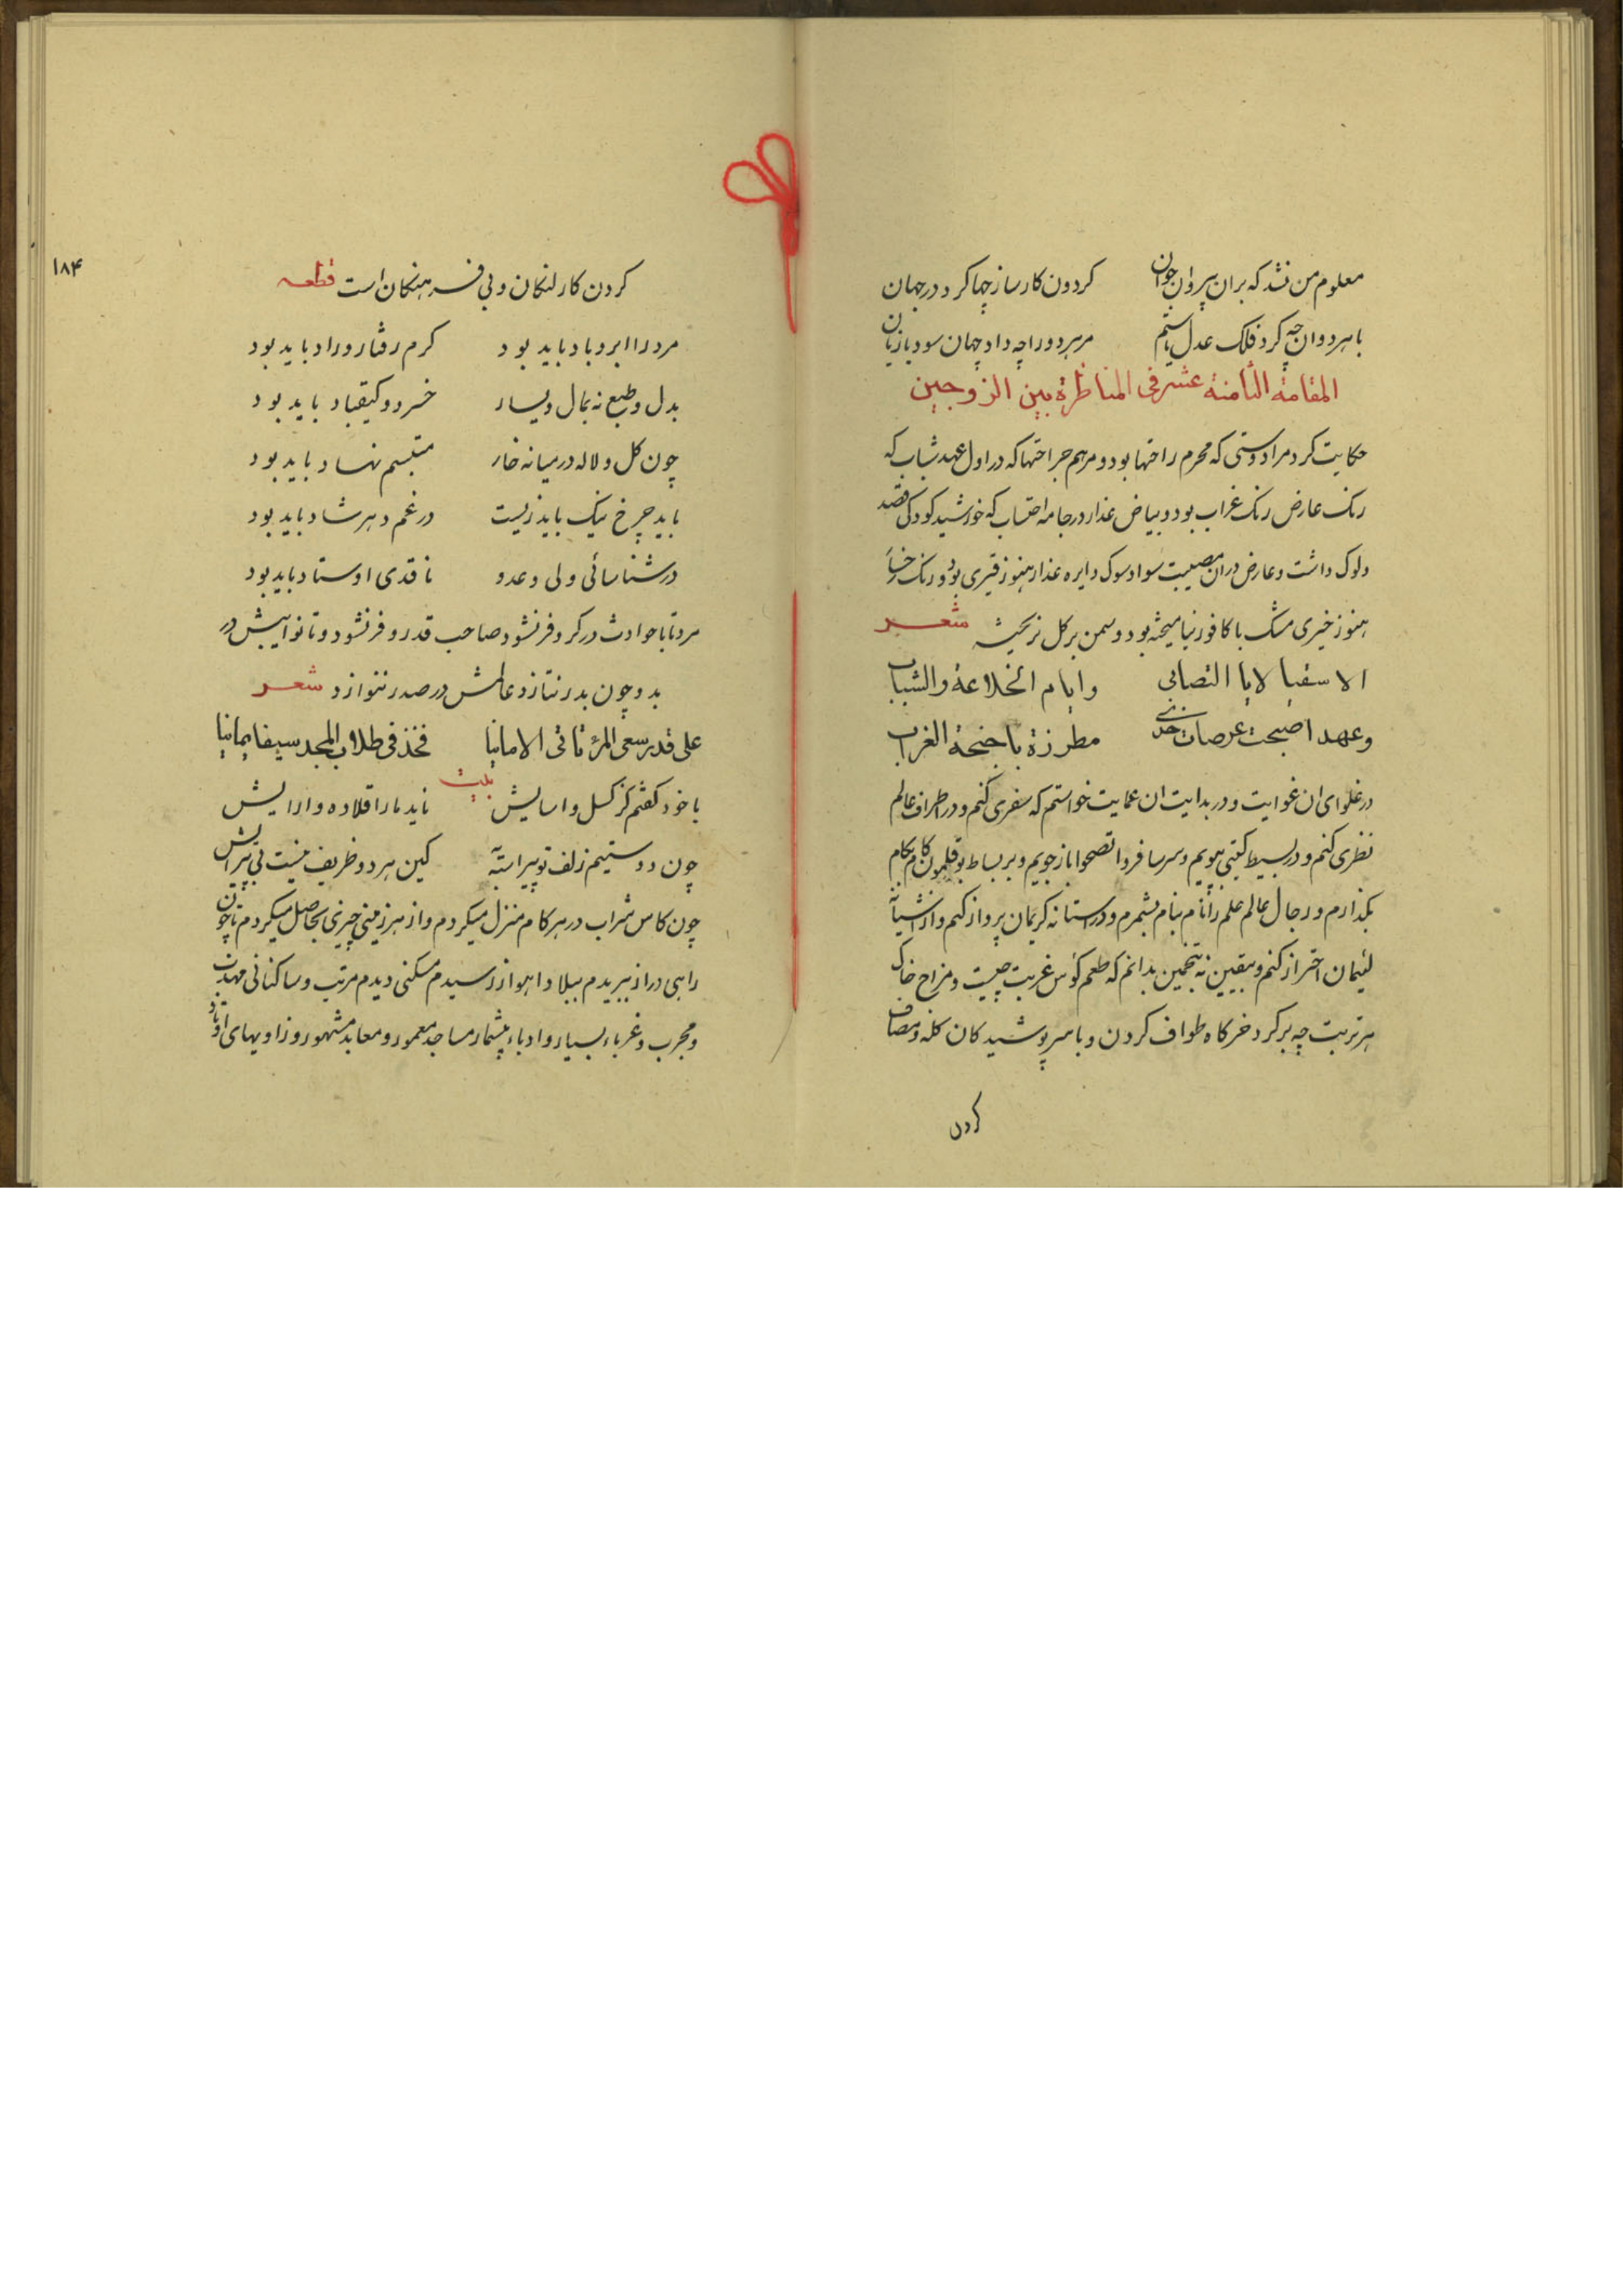 معلوم من نشد که بران پیر و ان جوان کردون کارساز چها کرد در جهان
با هر دو ان چه کرد فلک عدل یا ستم مر هر دو را چه داد جهان سود یا زیان
المقامة الثامنة عشر فی المناظرة بین الزوجین
حکایت کرد مرا دوستی که محرم راحتها بود و مرهم جراحتها که در اول عهد شباب که
رنک عارض رنک غراب بود و بیاض عذار در جامه احتساب که خورشید کودکی قصد
دلوک داشت و عارض دران مصیبت سواد سوک دایره عذار هنوز قیری بود و رنک رخسار
هنوز خیری مشک با کافور نیامیخته بود و سمن بر کل نریخته شعر
الا سقیا لایا التصابی و ایام الخلاعة والشباب
وعهد اصبحت عرصات خدی مطرزة باجنحة الغراب
در غلوای ان غوایت و در بدایت ان عمایت خواستم که سفری کنم و در اطراف عالم
نظری کنم و در بسیط کیتی بپویم و سر سافروا تصحوا باز جویم و بر بساط بوقلمون کام بکام
بکذارم و رجال عالم علم را نام بنام بشمرم و در استانه کریمان پرواز کنم و از اشیانه
لئیمان احتراز کنم و بیقین نه بتخمین بدانم که طعم کؤس غربت چیست و مزاج خاک
هر تربت چه بر کرد خرکاه طواف کردن و با سر پوشیدکان کله و مصاف
کردن
۱۸۴
کردن کار لنکان و بی فرهنکان است قطعه
مرد را ابر و باد باید بود کرم رفتار و راد باید بود
بدل و طبع نه بمال و یسار خسرو و کیقباد باید بود
چون کل و لاله در میانه خار متبسم نهاد باید بود
باید چرخ نیک باید زیست در غم دهر شاد باید بود
در شناسائی ولی و عدو ناقدی اوستاد باید بود
مرد تا با حوادث در کر و فر نشود صاحب قدر و فر نشود و تا نوایبش در
بدو چون بدر نتازد عالمش در صدر ننوازد شعر
علی قدر سعی المرء تاتی الامانیا فخذ فی طلاب المجد سیفا یمانیا
بیت
با خود کفتم کز کسل و اسایش ناید ما را قلاده و ارایش
چون دوستیم زلف تو پیراسته کین هر دو ظریف نیست بی پیرایش
چون کاس شراب در هر کام منزل میکردم و از هر زمینی چیزی بحاصل میکردم تا چون
راهی دراز ببریدم ببلاد اهواز رسیدم مسکنی دیدم مرتب و ساکنانی مهذب
و مجرب و غرباء بسیار و ادباء بیشمار مساجد معمور و معابد مشهور و زاویهای اوتاد